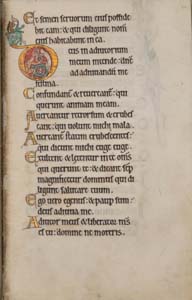 Et semen servorum eius posside
bit eam: & qui diligunt nom
eius habitabunt in ea.
eus in adiutorium
meum intende: dne
ad adiuvandu me
festina.
Confundant & revereant: qui
querunt animam meam.
Avertantur retrorsum & erubes
cant: qui volunt michi mala.
Avertant statim erubescentes:
qui dicunt michi euge euge.
Exultent & letentur in te oms
qui querunt te: & dicant sep
magnificetur dominus qui di
ligunt salutare tuum.
Ego vero egenus & paup sum:
deus adiuva me.
Adiutor meus & liberator ms
es tu: domine ne moreris.